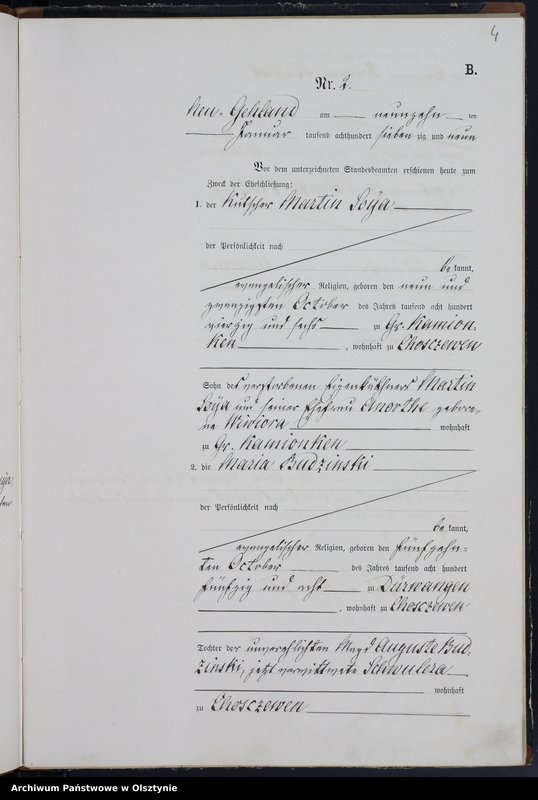 4
B.
Nr. 2.
Neu-Gehland am neunzehn ten
Januar tausend achthundert sieben zig und neun
Vor dem unterzeichneten Standesbeamten erschienen heute zum
Zweck der Eheschließung:
1. der Kutscher Martin Soÿa
der Persönlichkeit nach
be kannt,
evangelischer Religion, geboren den neun und
zwanzigsten October des Jahres tausend acht hundert
vierzig und sechs zu Gr. Kamion-
ken, wohnhaft zu Chosczewen
Sohn des verstorbenen Eigenkäthners Martin
Soÿa und seiner Ehefrau Enorthe gebore-
ne Wiwiora wohnhaft
zu Gr. Kamionken
2. die Maria Budzinski
der Persönlichkeit nach
be kannt,
evangelischer Religion, geboren den fünfzehn-
ten October des Jahres tausend acht hundert
fünfzig und acht zu Dürwangen
, wohnhaft zu Chosczewen
Tochter der unverehlichten Magd Auguste Bud-
zinski, jetzt verwittwete Schwulera
wohnhaft
zu Chosczewen
Archiwum Państwowe w Olsztynie